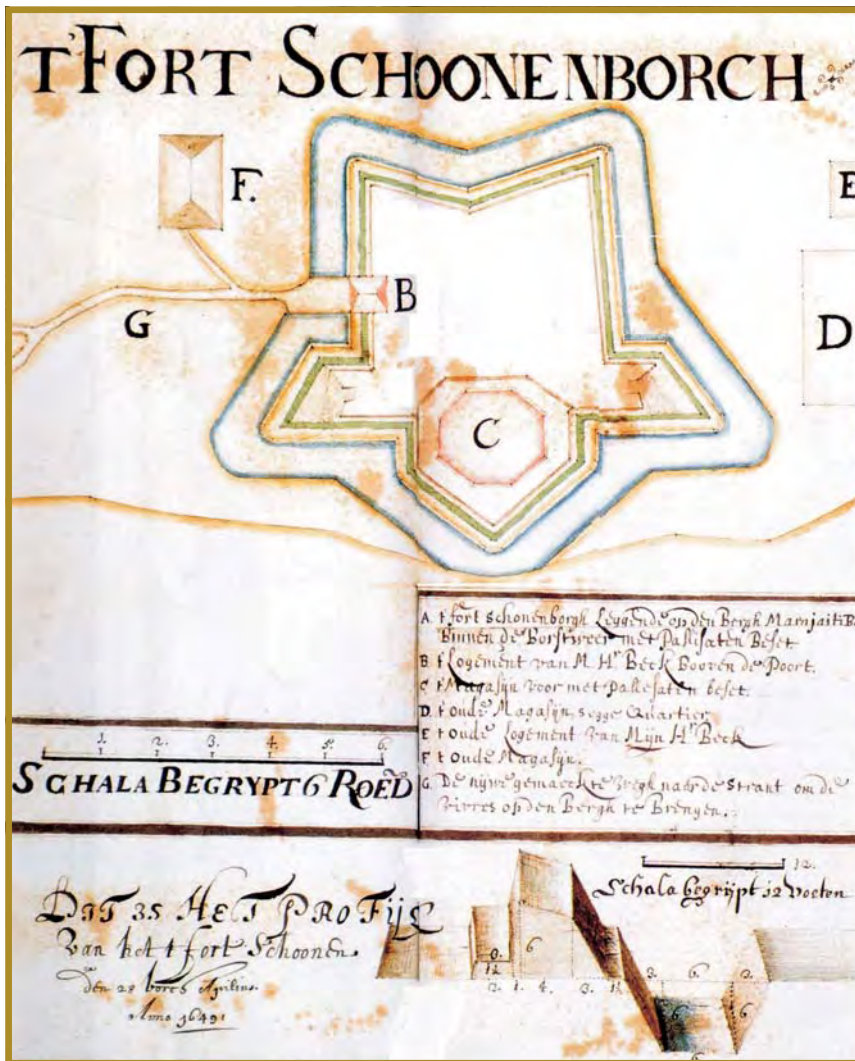 T'FORT SCHOONENBORCH
F.
E
B
G
D
C
A. t fort schonenborgh Leggende op den Bergh Marajaitiba
Binnen de Borstweer met Pallisaten Beset.
B t Logement van M Hr Beck Booven de Poort.
C t Magasijn voor met pallesaten beset.
D t oude Magasijn, segge Quartier
E t oude Logement van Mijn Hr Beck
F t oude Magasijn.
G. De nijwe gemaeckte Wegh naer de strant om de
Vivres op den Bergh te Brengen.
1. 2. 3. 4. 5. 6.
SCHALA BEGRYPT 6 ROED
12.
Schala begrijpt 12 voeten
DIT IS HET PROFIJL
Van het t fort Schoonen
den 28 Aprilis
Anno 1649
6
1½
2. 1. 4. 3. 1½ 3. 6. 3.
6 6
6